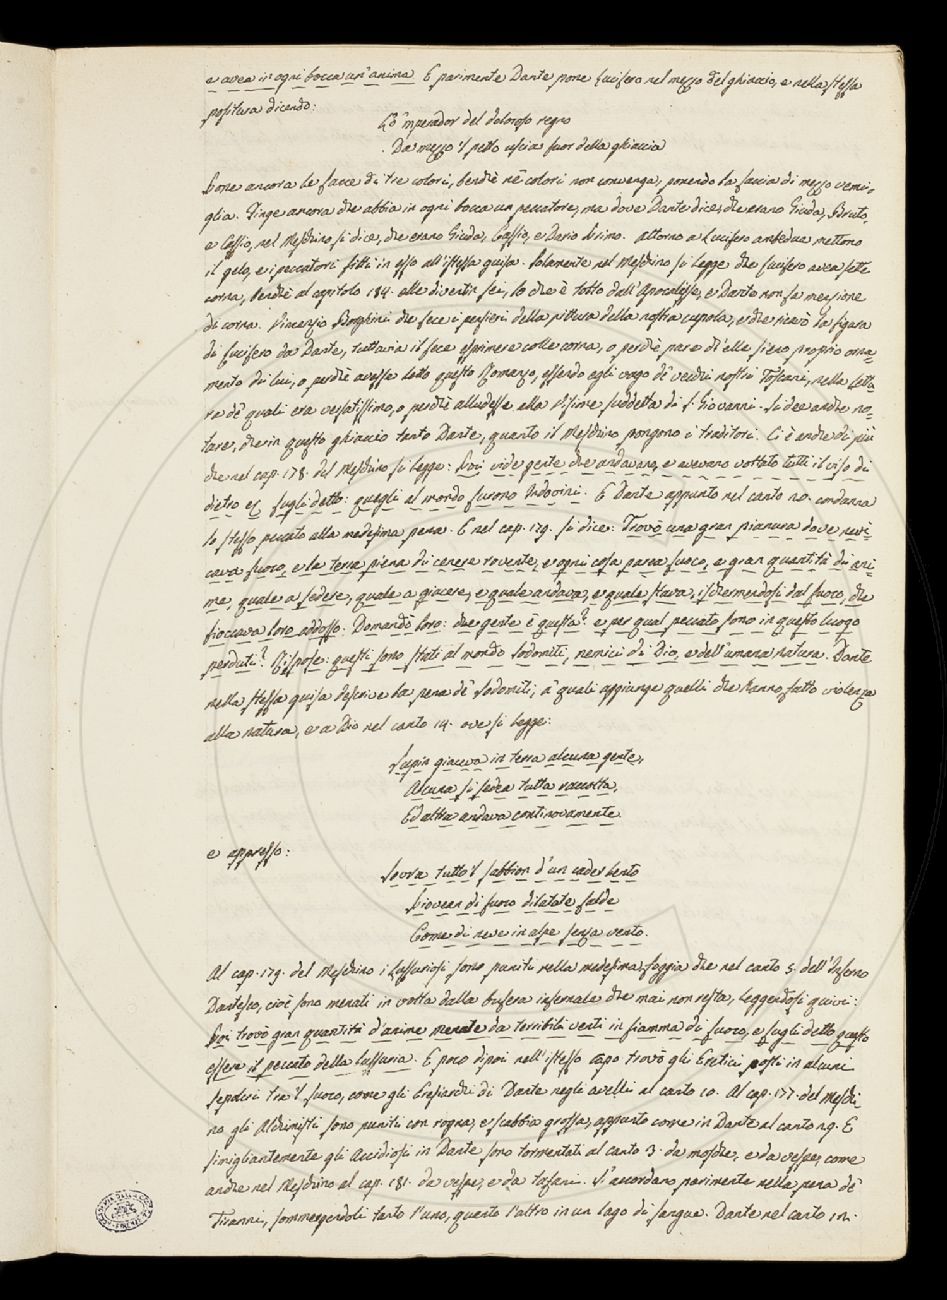 e avea in ogni bocca un'anima E parimente Dante pone Lucifero nel mezzo del ghiaccio, e nella stessa
positura dicendo:
Lo 'mperador del doloroso regno
Da mezzo 'l petto uscia fuor della ghiaccia
Pone ancora le facce di tre colori, benchè ne' colori non convenga, ponendo la faccia di mezzo vermi-
glia. Finge ancora che abbia in ogni bocca un peccatore, ma dove Dante dice, che erano Giuda, Bruto,
e Cassio, nel Meschino si dice, che erano Giuda, Cassio, e Dario Primo. Attorno a Lucifero ambedue mettono
il gelo, e i peccatori fitti in esso all'istessa guisa. Solamente nel Meschino si legge che Lucifero avea sette
corna, benchè al capitolo 184. alle diventin sei, lo che è tolto dall'Apocalisse, e Dante non fa menzione
di corna. Vincenzio Borghini che fece i pensieri della pittura della nostra cupola, e che ricavò la figura
di Lucifero da Dante, tuttavia il fece esprimere colle corna, o perchè pare ch'elle sieno proprio orna-
mento di lui, o perchè avesse letto questo Romanzo, essendo egli vago de' vecchi nostri Toscani, nella lettu-
ra de' quali era versatissimo, o perchè alludesse alla Visione suddetta di S. Giovanni. Si dee anche no-
tare, che in questo ghiaccio tanto Dante, quanto il Meschino pongono i traditori. Ci è anche di più
che nel cap. 178. del Meschino si legge: Poi vide gente che andavano, e avevano voltato tutti il viso di
dietro ec. fugli detto: quegli al mondo furono Indovini. E Dante appunto nel canto 20. condanna
lo stesso peccato alla medesima pena. E nel cap. 179. si dice: Trovò una gran pianura dove nevi-
cava fuoco, e la terra piena di cenere rovente, e ogni cosa parea fuoco, e gran quantità di ani-
me, quale a sedere, quale a giacere, e quale andava, e quale stava, ischermendosi dal fuoco, che
fioccava loro addosso: Domandò loro: che gente è questa? e per qual peccato sono in questo luogo
perduti? Rispose: questi sono stati al mondo Sodomiti, nemici di Dio, e dell'umana natura. Dante
nella stessa guisa descrive la pena de' Sodomiti; a' quali aggiunge quelli che hanno fatto violenza
alla natura, e a Dio nel canto 14. ove si legge:
Supin giaceva in terra alcuna gente,
Alcuna si sedea tutta raccolta,
Ed altra andava continovamente
e appresso:
Sovra tutto 'l sabbion d'un cader lento
Piovean di fuoco dilatate falde
Come di neve in alpe senza vento.
Al cap. 179. del Meschino i Lussuriosi sono puniti nella medesima foggia che nel canto 5. dell'Inferno
Dantesco, cioè sono menati in volta dalla bufera infernale che mai non resta, leggendosi quivi:
Poi trovò gran quantità d'anime menate da terribili venti in fiamma di fuoco, e fugli detto questo
essere il peccato della lussuria. E poco dipoi nell'istesso capo trovò gli Eretici posti in alcuni
sepolcri tra 'l fuoco, come gli Eresiarchi di Dante negli avelli al canto 10. Al cap. 177. del Meschi-
no gli Alchimisti sono puniti con rogna, e scabbia grossa, appunto come in Dante al canto 29. E
simigliantemente gli Accidiosi in Dante sono tormentati al canto 3. da mosche, e da vespe, come
anche nel Meschino al cap. 181. da vespe, e da tafani. S'accordano parimente nella pena de'
Tiranni, sommergendoli tanto l'uno, quanto l'altro in un lago di sangue. Dante nel canto 12.